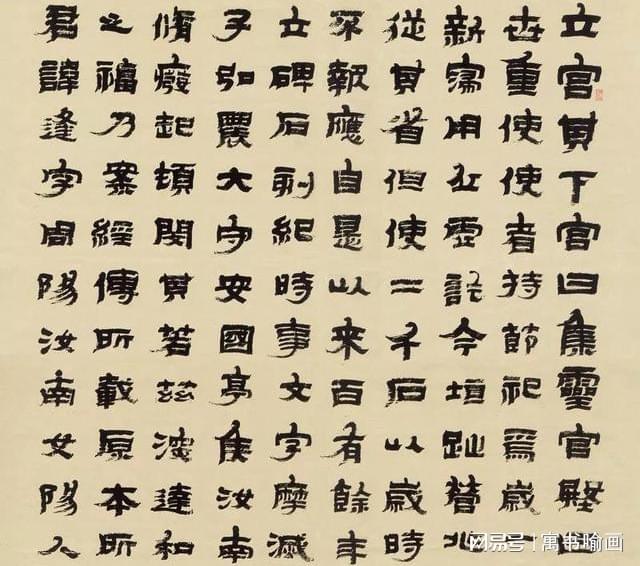 立宮其下宮曰集靈宮殿曰
世重使使者持節祀焉歲一
新寖用丘虛訖今垣趾營兆
從其省但使二千石以歲時
不報應自是以來百有餘年
立碑石刻紀時事文字摩滅
子弘農大守安國亭侯汝南
脩廢起頓閔其若茲深達和
之福乃案經傳所載原本所
君諱逢字周陽汝南女陽人
网易号 | 寓书喻画